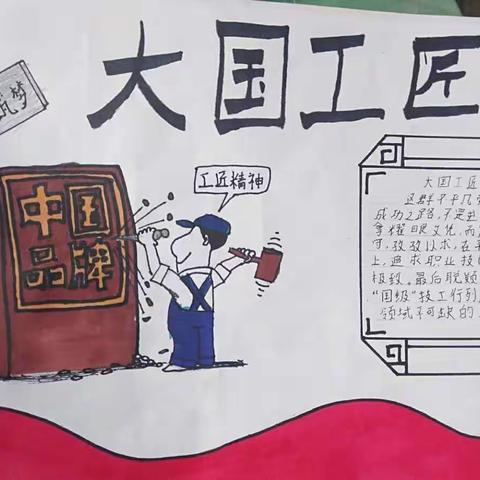 筑梦
大国工匠
工匠精神
中国
品牌
大国工匠
这群不平凡
成功之路,不是进
拿耀眼文凭,而
守,孜孜以求,在
上,追求职业技
极致。最后脱颖
“国级”技工行列,
领域不可缺的